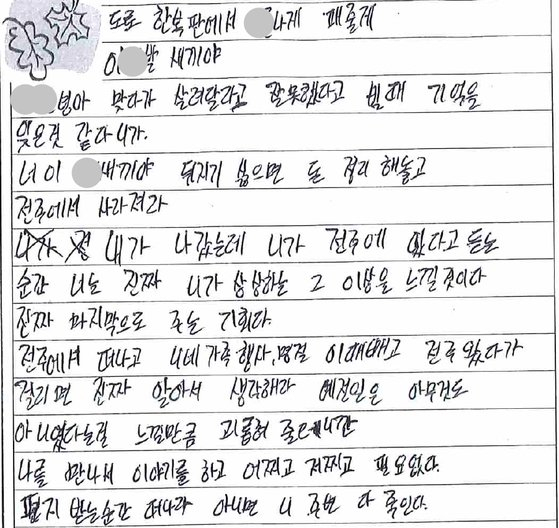 도로 한복판에서 나게 패줄게
이 발 새끼야
병아 맞다가 살려달라고 잘못했다고 빌때 기억을
잊은것 같다 니가.
너 이 새끼야 뒤지기 싫으면 돈 정리 해놓고
전주에서 사라져라
내가 나갔는데 니가 전주에 있다고 듣는
순간 너는 진짜 니가 상상하는 그 이상을 느낄것이다
진짜 마지막으로 주는 기회다.
전주에서 떠나고 니네 가족행사, 명절 이때빼고 전주 있다가
걸리면 진짜 알아서 생각해라 예전일은 아무것도
아니였다는걸 느낄만큼 괴롭혀 줄테니깐
나를 만나서 이야기를 하고 어찌고 저찌고 필요없다.
편지 받는순간 떠나라 아니면 니 주변 다 죽인다.